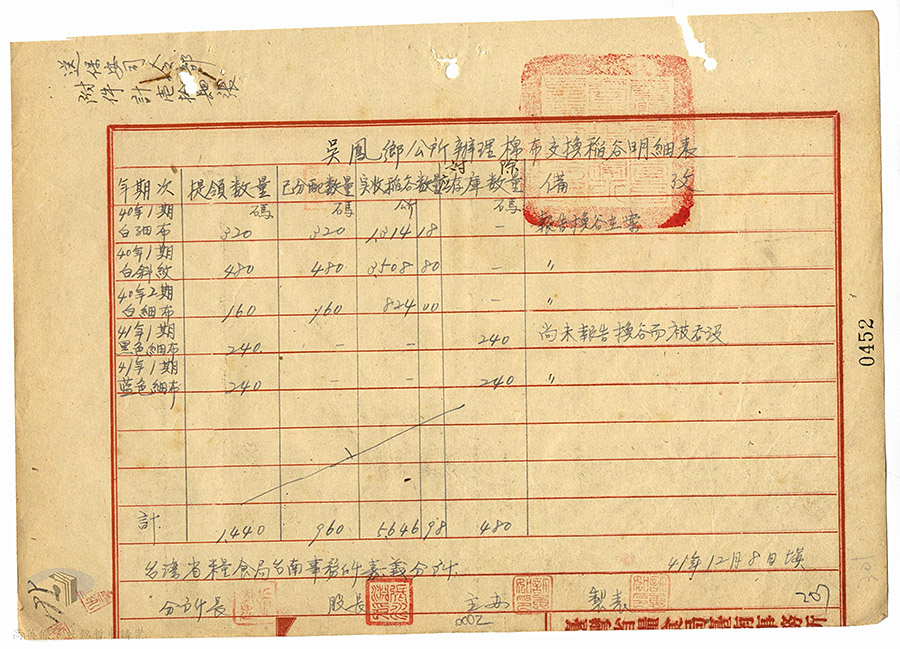 送保安司令部
附件計壱拾張
吳鳳鄉公所辦理棉布交換稻谷明細表
年期次 提領数量 已分配數量 实收稻谷数量 应存庫数量 備 攷
碼 碼 斤 碼
40年1期 白細布 320 320 1,314 18 — 報告換谷在案
40年1期 白斜紋 480 480 3,508 80 — 〃
40年2期 白細布 160 160 824 00 — 〃
41年1期 黑色細布 240 — — 240 尚未報告換谷而被吞沒
41年1期 藍色細布 240 — — 240 〃
計 1440 960 5646 98 480
台湾省糧食局台南事務所嘉義分所 41年12月8日填
分所長 股長 主办 製表
0002
0452